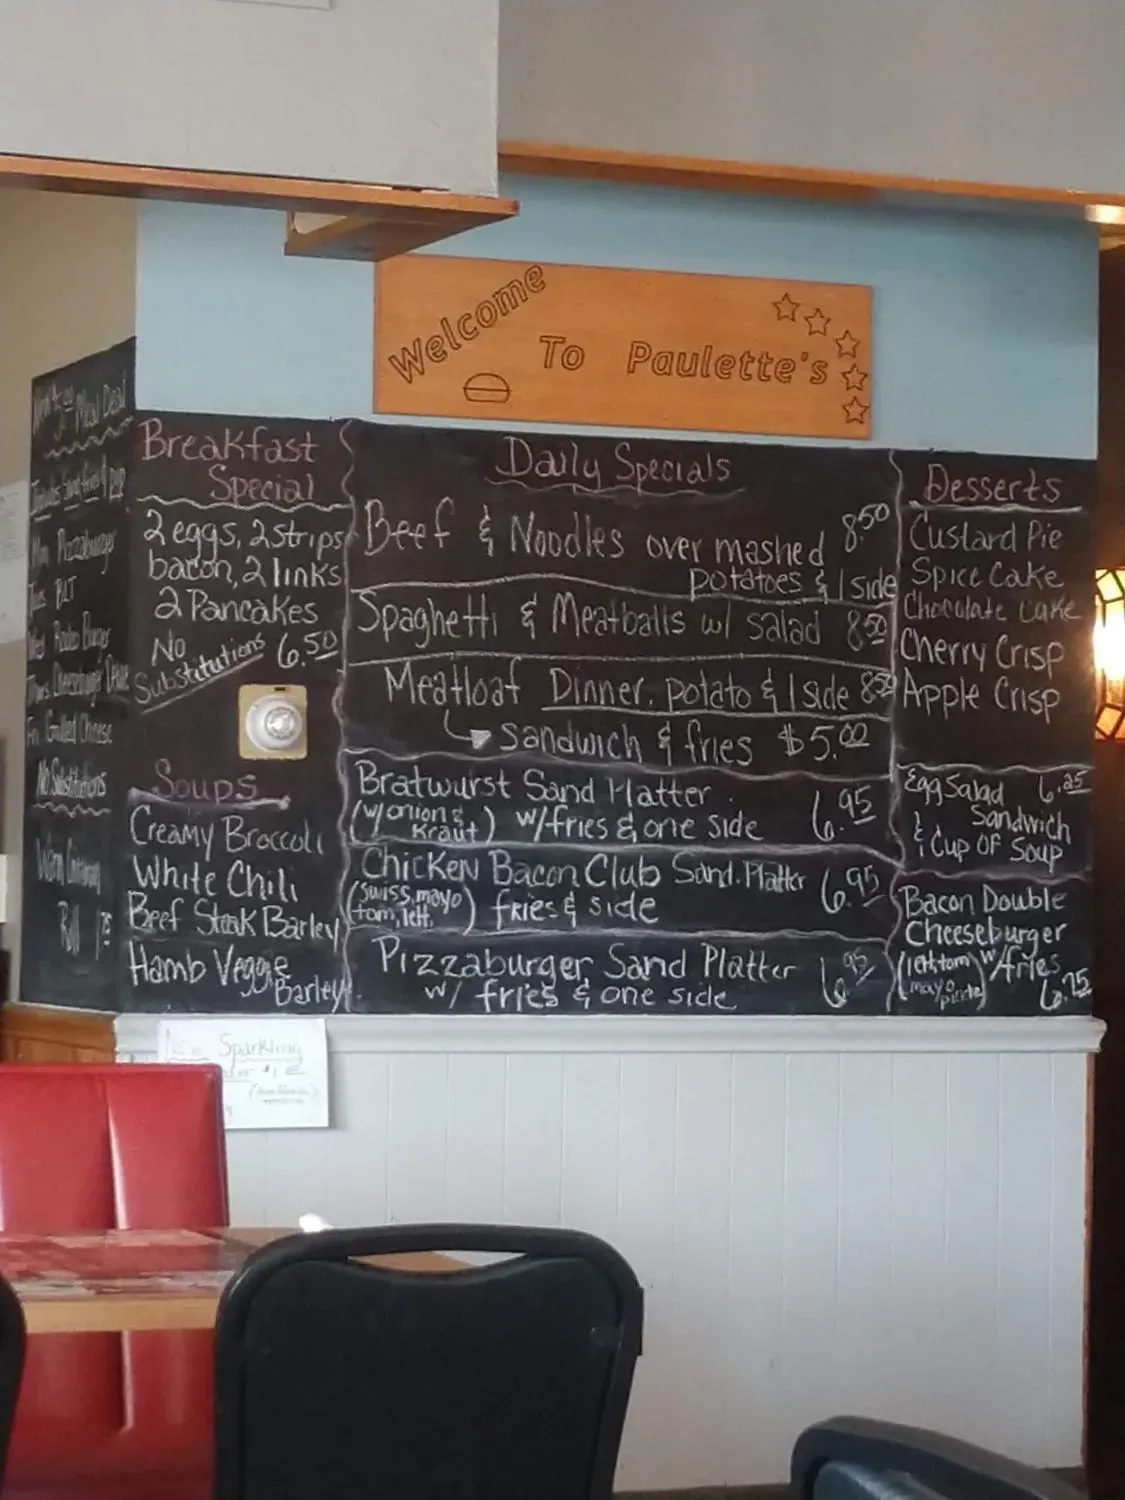 Welcome To Paulette's
Meal Deal
Mon Pizzaburger
Wed Rodeo Burger
Fri Grilled Cheese
No Substitutions
Roll
Breakfast
Special
2 eggs, 2 strips
bacon, 2 links
2 Pancakes
No
Substitutions 6.50
Soups
Creamy Broccoli
White Chili
Beef Steak Barley
Hamb Veggie
Barley
Daily Specials
Beef & Noodles over mashed 8.50
potatoes & 1 side
Spaghetti & Meatballs w/ salad 8.50
Meatloaf Dinner, potato & 1 side 8.50
sandwich & fries $5.00
Bratwurst Sand Platter 6.95
(w/onion & Kraut) w/fries & one side
Chicken Bacon Club Sand. Platter 6.95
(swiss, mayo tom, lett.) fries & side
Pizzaburger Sand Platter 6.95
w/ fries & one side
Desserts
Custard Pie
Spice Cake
Chocolate Cake
Cherry Crisp
Apple Crisp
Egg Salad 6.25
Sandwich
& Cup OF Soup
Bacon Double
Cheeseburger
(lett, tom mayo, pickle) w/fries
6.75
New Sparkling